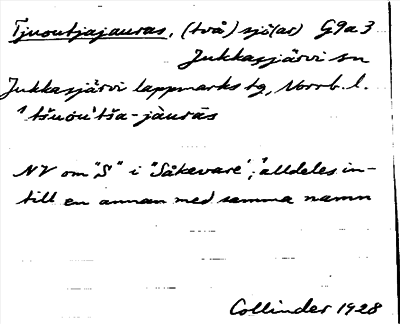 Tjuoutjajauras, (två) sjö(ar) G9a3
Jukkasjärvi sn
Jukkasjärvi lappmarks tg, Norrb. l.
NV om "S" i "Såkevare"; alldeles in-
till en annan med samma namn
Collinder 1928